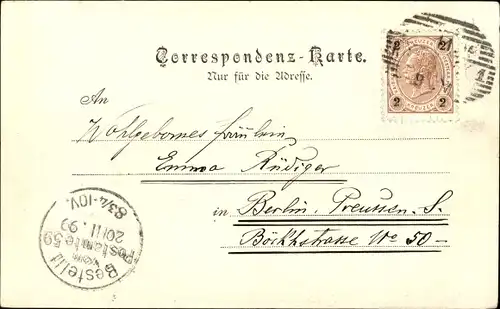 Correspondenz-Karte.
Nur für die Adresse.
2 KREUZER 2
2 KREUZER 2
1
An
Wohlgebornes Fräulein
Emma Rüdiger
in Berlin, Preussen. S.
Böckhstrasse No 50-
Bestellt
vom
Postamte 59
20/11 99
8 3/4-10V.